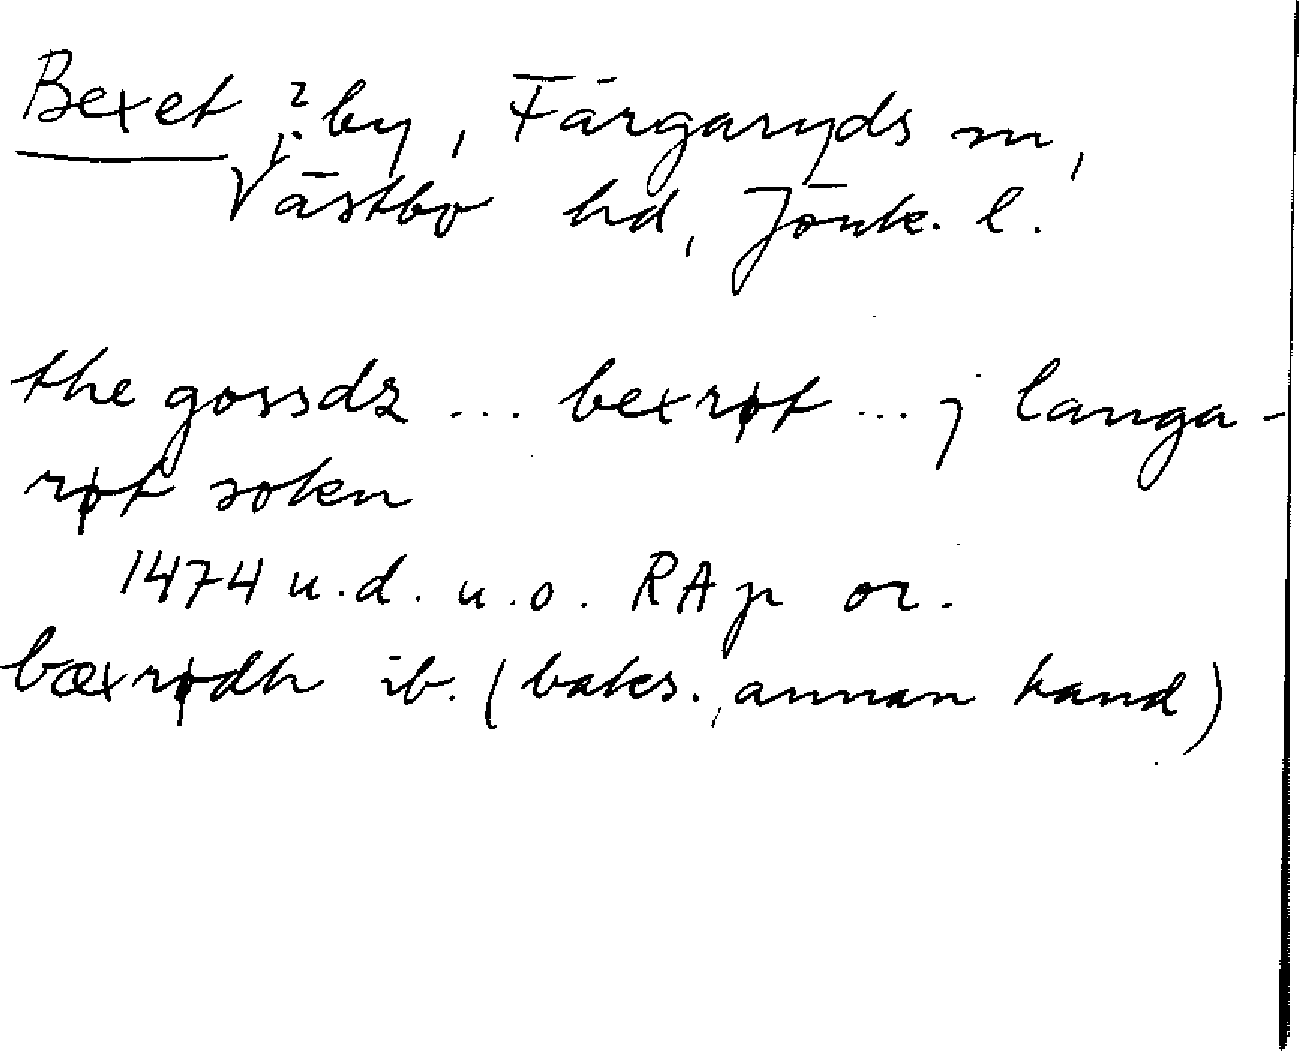 Bexet, ? by, Färgaryds sn,
Västbo hd, Jönk. l.
the gossdz ... bexrøt ... j langa-
røt sokn
1474 u.d. u.o. RAp or.
bæxrødh ib. (baks., annan hand)